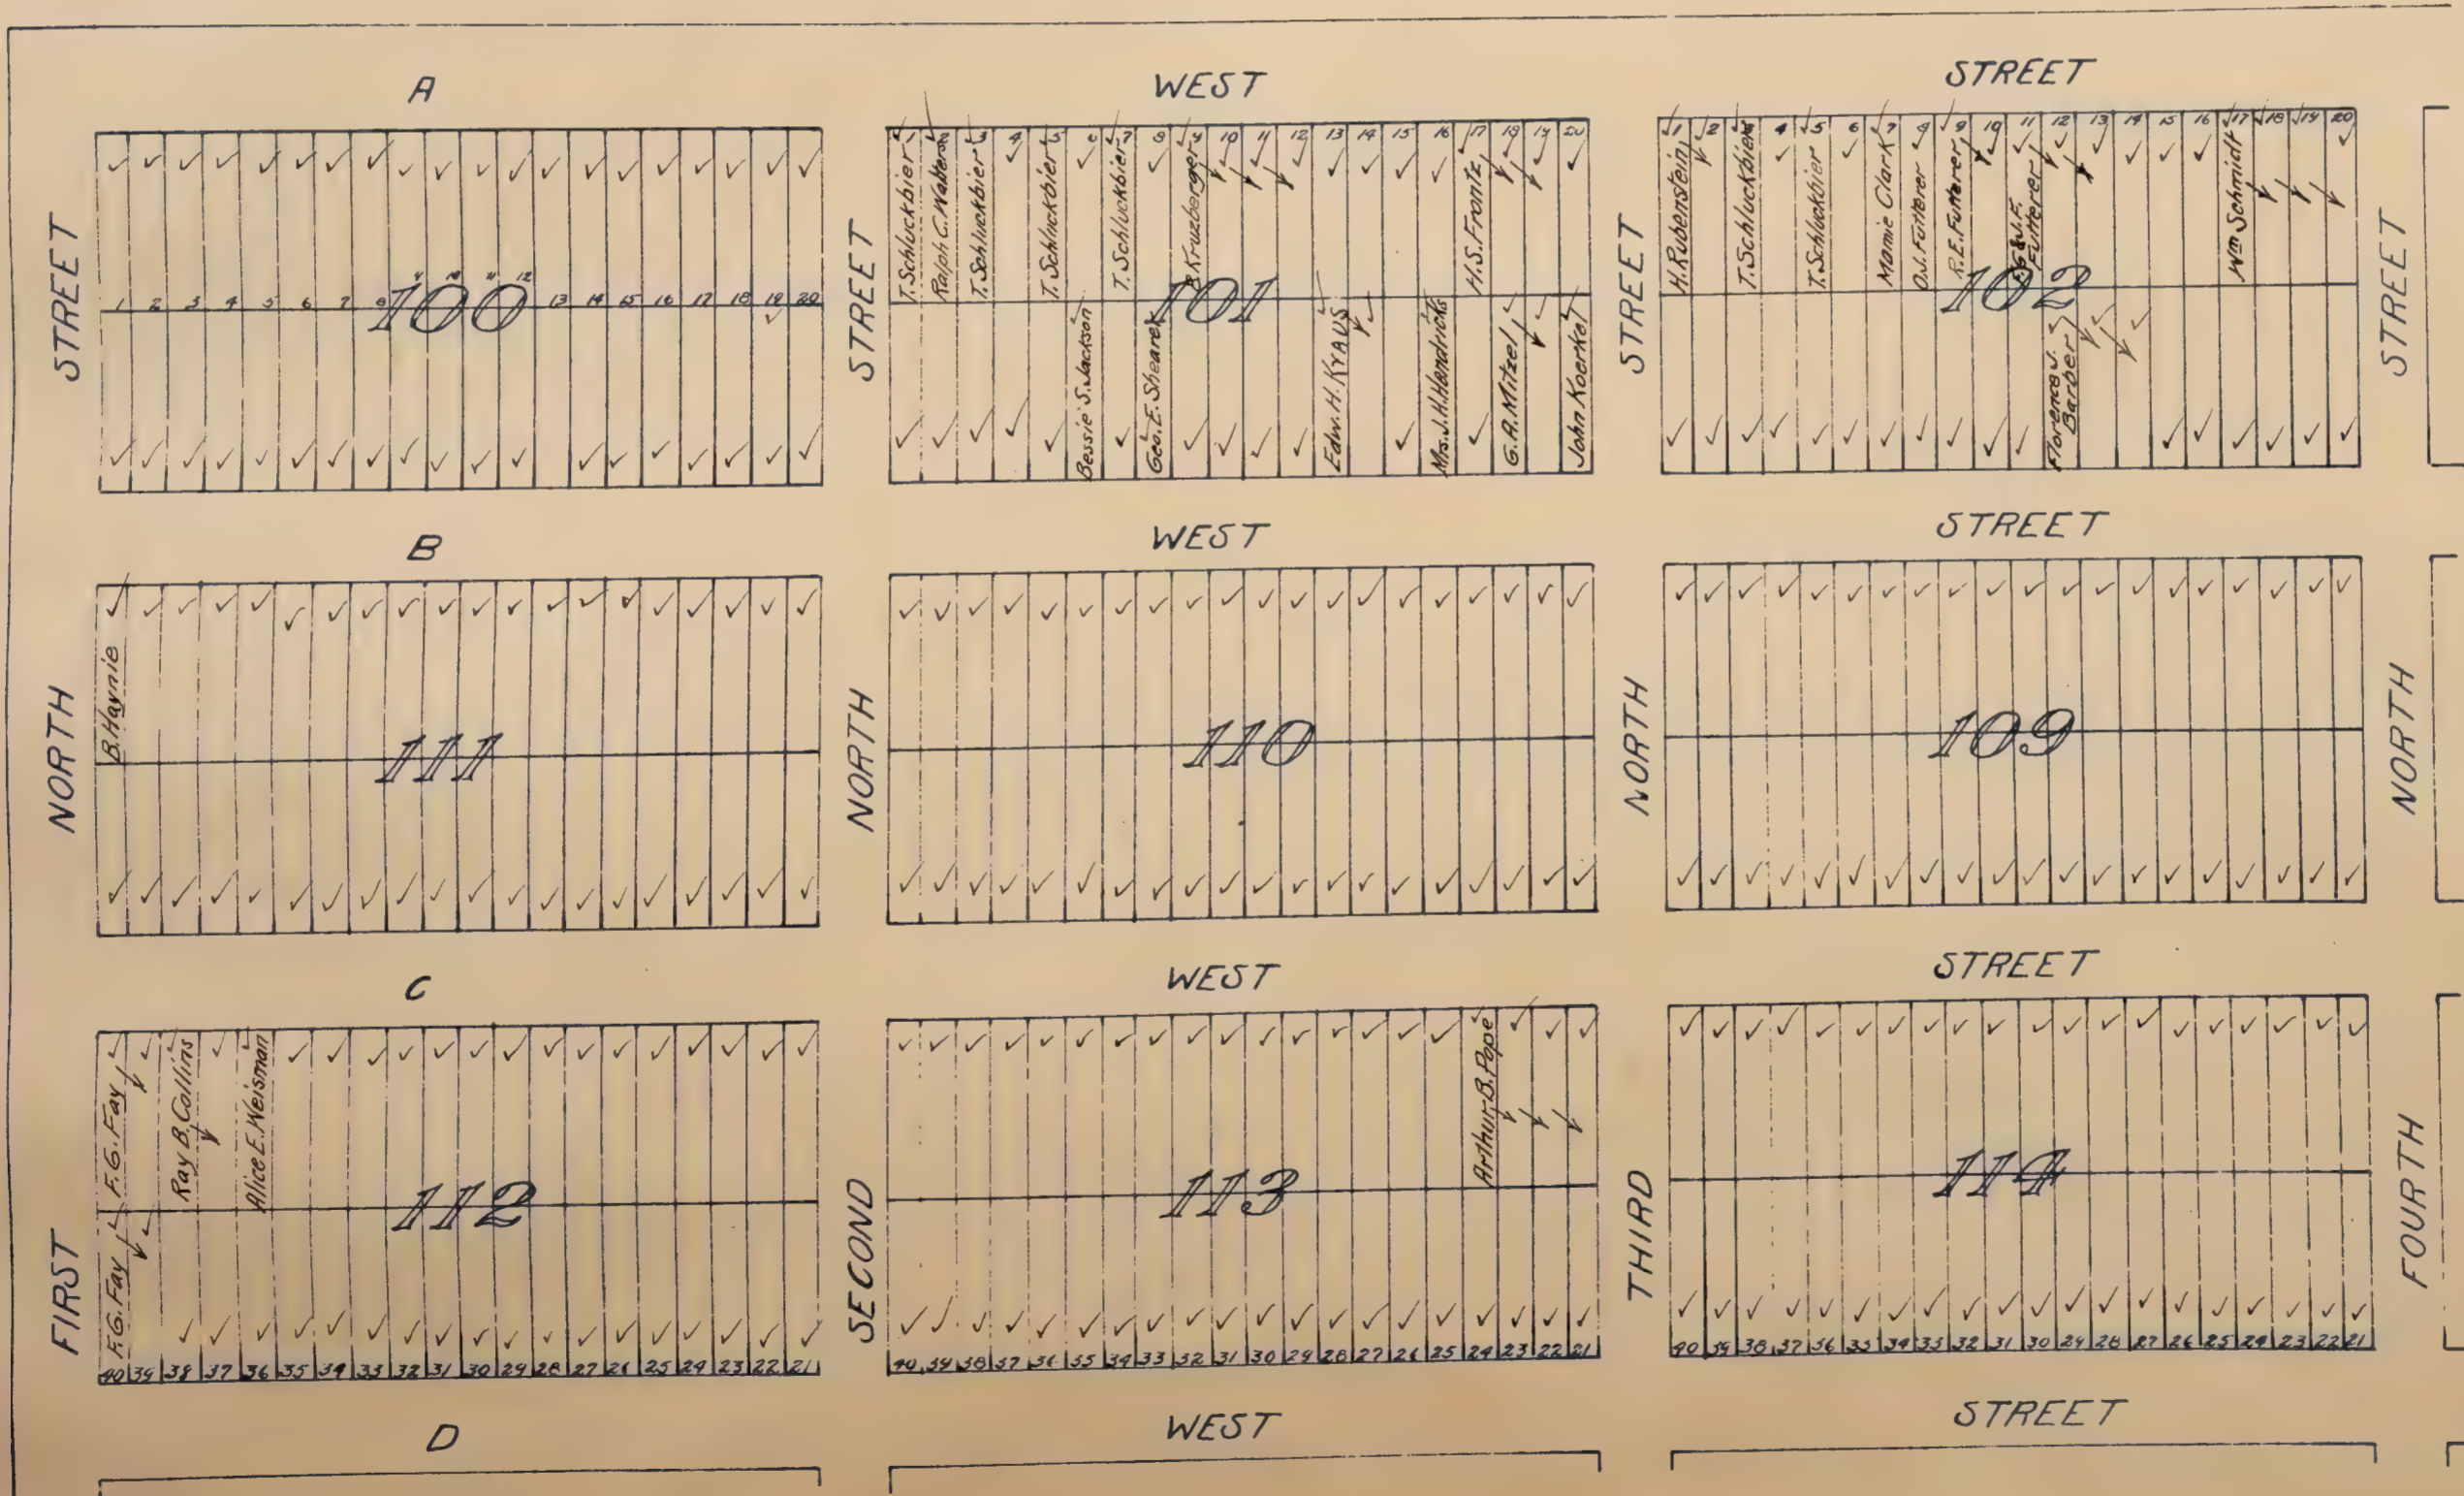 A WEST STREET
STREET STREET STREET STREET
1 2 3 4 5 6 7 8 9 10 11 12 13 14 15 16 17 18 19 20
100
1 2 3 4 5 6 7 8 9 10 11 12 13 14 15 16 17 18 19 20
T. Schluckbier
Ralph C. Walters
T. Schluckbier
T. Schluckbier
T. Schluckbier
Kruzberger
H.S. Frontz
101
Bessie S. Jackson
Geo. E. Shearer
Edw. H. Kraus
Mrs. J.H. Hendricks
G.A. Mitzel
John Koerkel
1 2 3 4 5 6 7 8 9 10 11 12 13 14 15 16 17 18 19 20
H. Rubenstein
T. Schluckbier
T. Schluckbier
Mamie Clark
O.J. Futterer
R.E. Futterer
& J.F. Futterer
Wm Schmidt
102
Florence J. Barber
B WEST STREET
NORTH NORTH NORTH NORTH
B. Haynie
111
110
109
C WEST STREET
FIRST SECOND THIRD FOURTH
F.G. Fay
Ray B. Collins
Alice E. Weisman
112
F.G. Fay
40 39 38 37 36 35 34 33 32 31 30 29 28 27 26 25 24 23 22 21
Arthur B. Pope
113
40 39 38 37 36 35 34 33 32 31 30 29 28 27 26 25 24 23 22 21
114
40 39 38 37 36 35 34 33 32 31 30 29 28 27 26 25 24 23 22 21
D WEST STREET